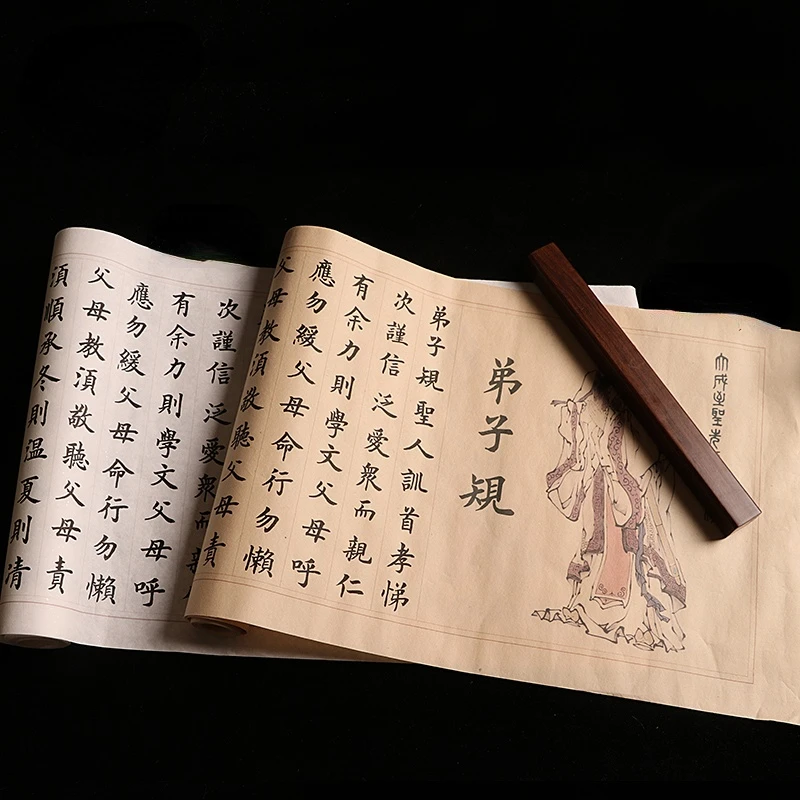 大成至聖先
弟子規
弟子規聖人訓首孝悌
次謹信泛愛衆而親仁
有余力則學文父母呼
應勿緩父母命行勿懶
父母教湏敬聽父母責
次謹信泛愛衆而親
有余力則學文父母呼
應勿緩父母命行勿懶
父母教湏敬聽父母責
湏順承冬則温夏則清